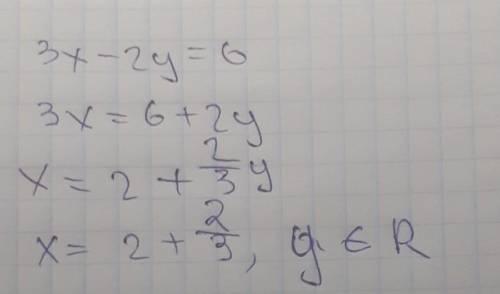 3x - 2y = 6
3x = 6 + 2y
x = 2 + 2/3 y
x = 2 + 2/3, y ∈ R